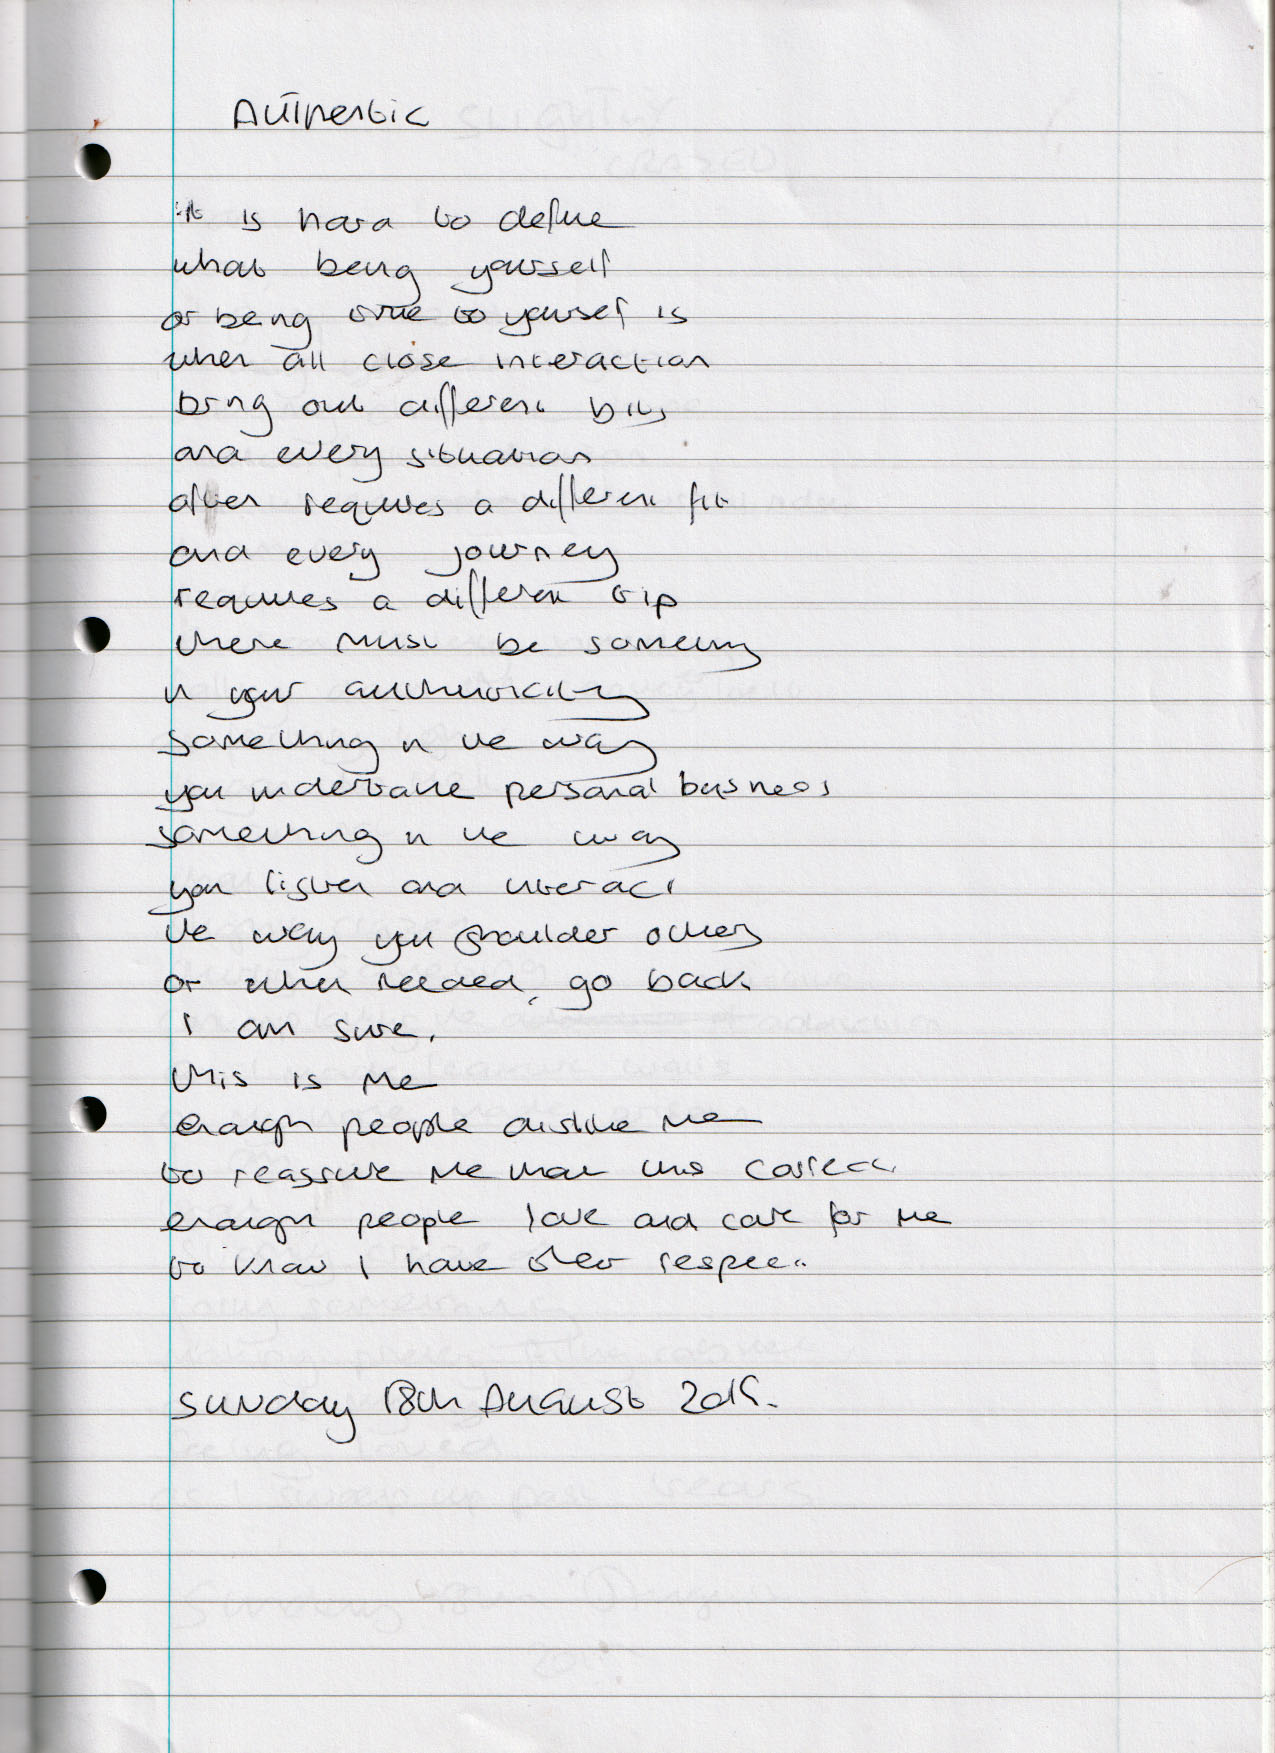 Authentic
it is hard to define
what being yourself
or being true to yourself is
when all close interaction
bring out different bits
and every situation
often requires a different fit
and every journey
requires a different trip
there must be something
in your authenticity
something in the way
you undertake personal business
something in the way
you listen and interact
the way you shoulder others
or when needed, go back
I am sure.
this is me
enough people dislike me
to reassure me that this correct.
enough people love and care for me
to know I have their respect.
Sunday 18th August 2019.
SLIGHTLY
CRAZED